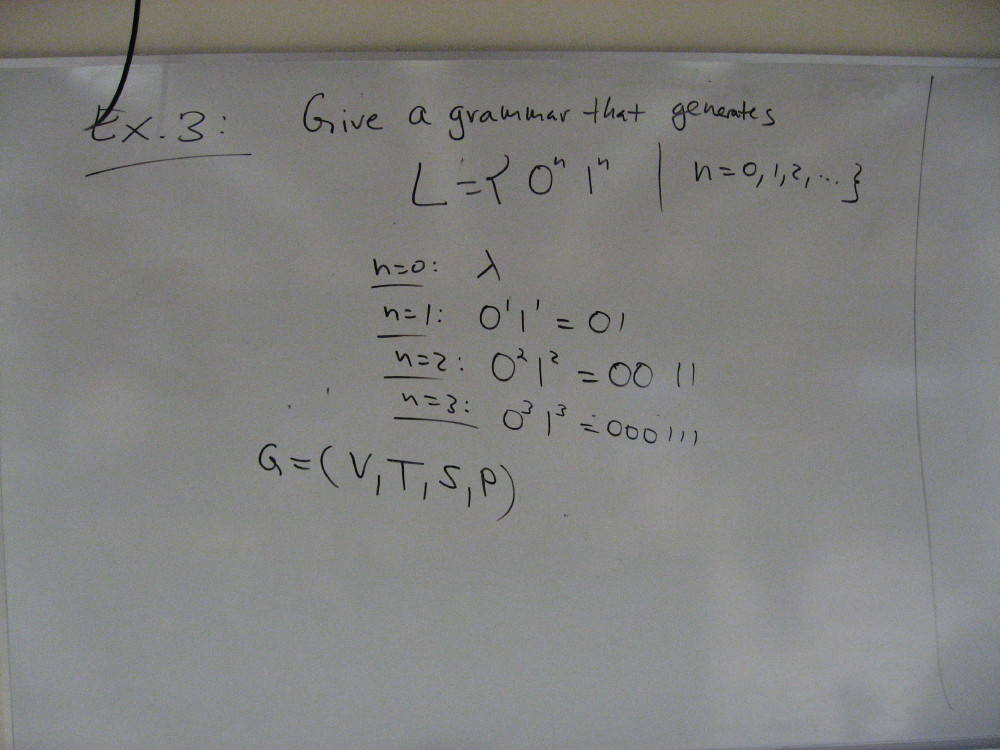 Ex. 3: Give a grammar that generates
L = { 0ⁿ 1ⁿ | n = 0, 1, 2, ... }
n=0: λ
n=1: 0¹1¹ = 01
n=2: 0²1² = 00 11
n=3: 0³1³ = 000111
G = (V, T, S, P)